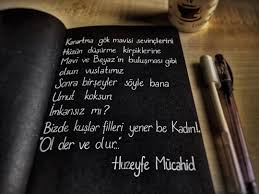 Karartma gök mavisi sevinçlerini
Hüzün düşürme kirpiklerine
Mavi ve Beyaz'ın buluşması gibi
olsun vuslatımız
Sonra birşeyler söyle bana
Umut koksun
İmkansız mı?
Bizde kuşlar filleri yener be Kadın!.
"Ol der ve olur..."
Huzeyfe Mücahid